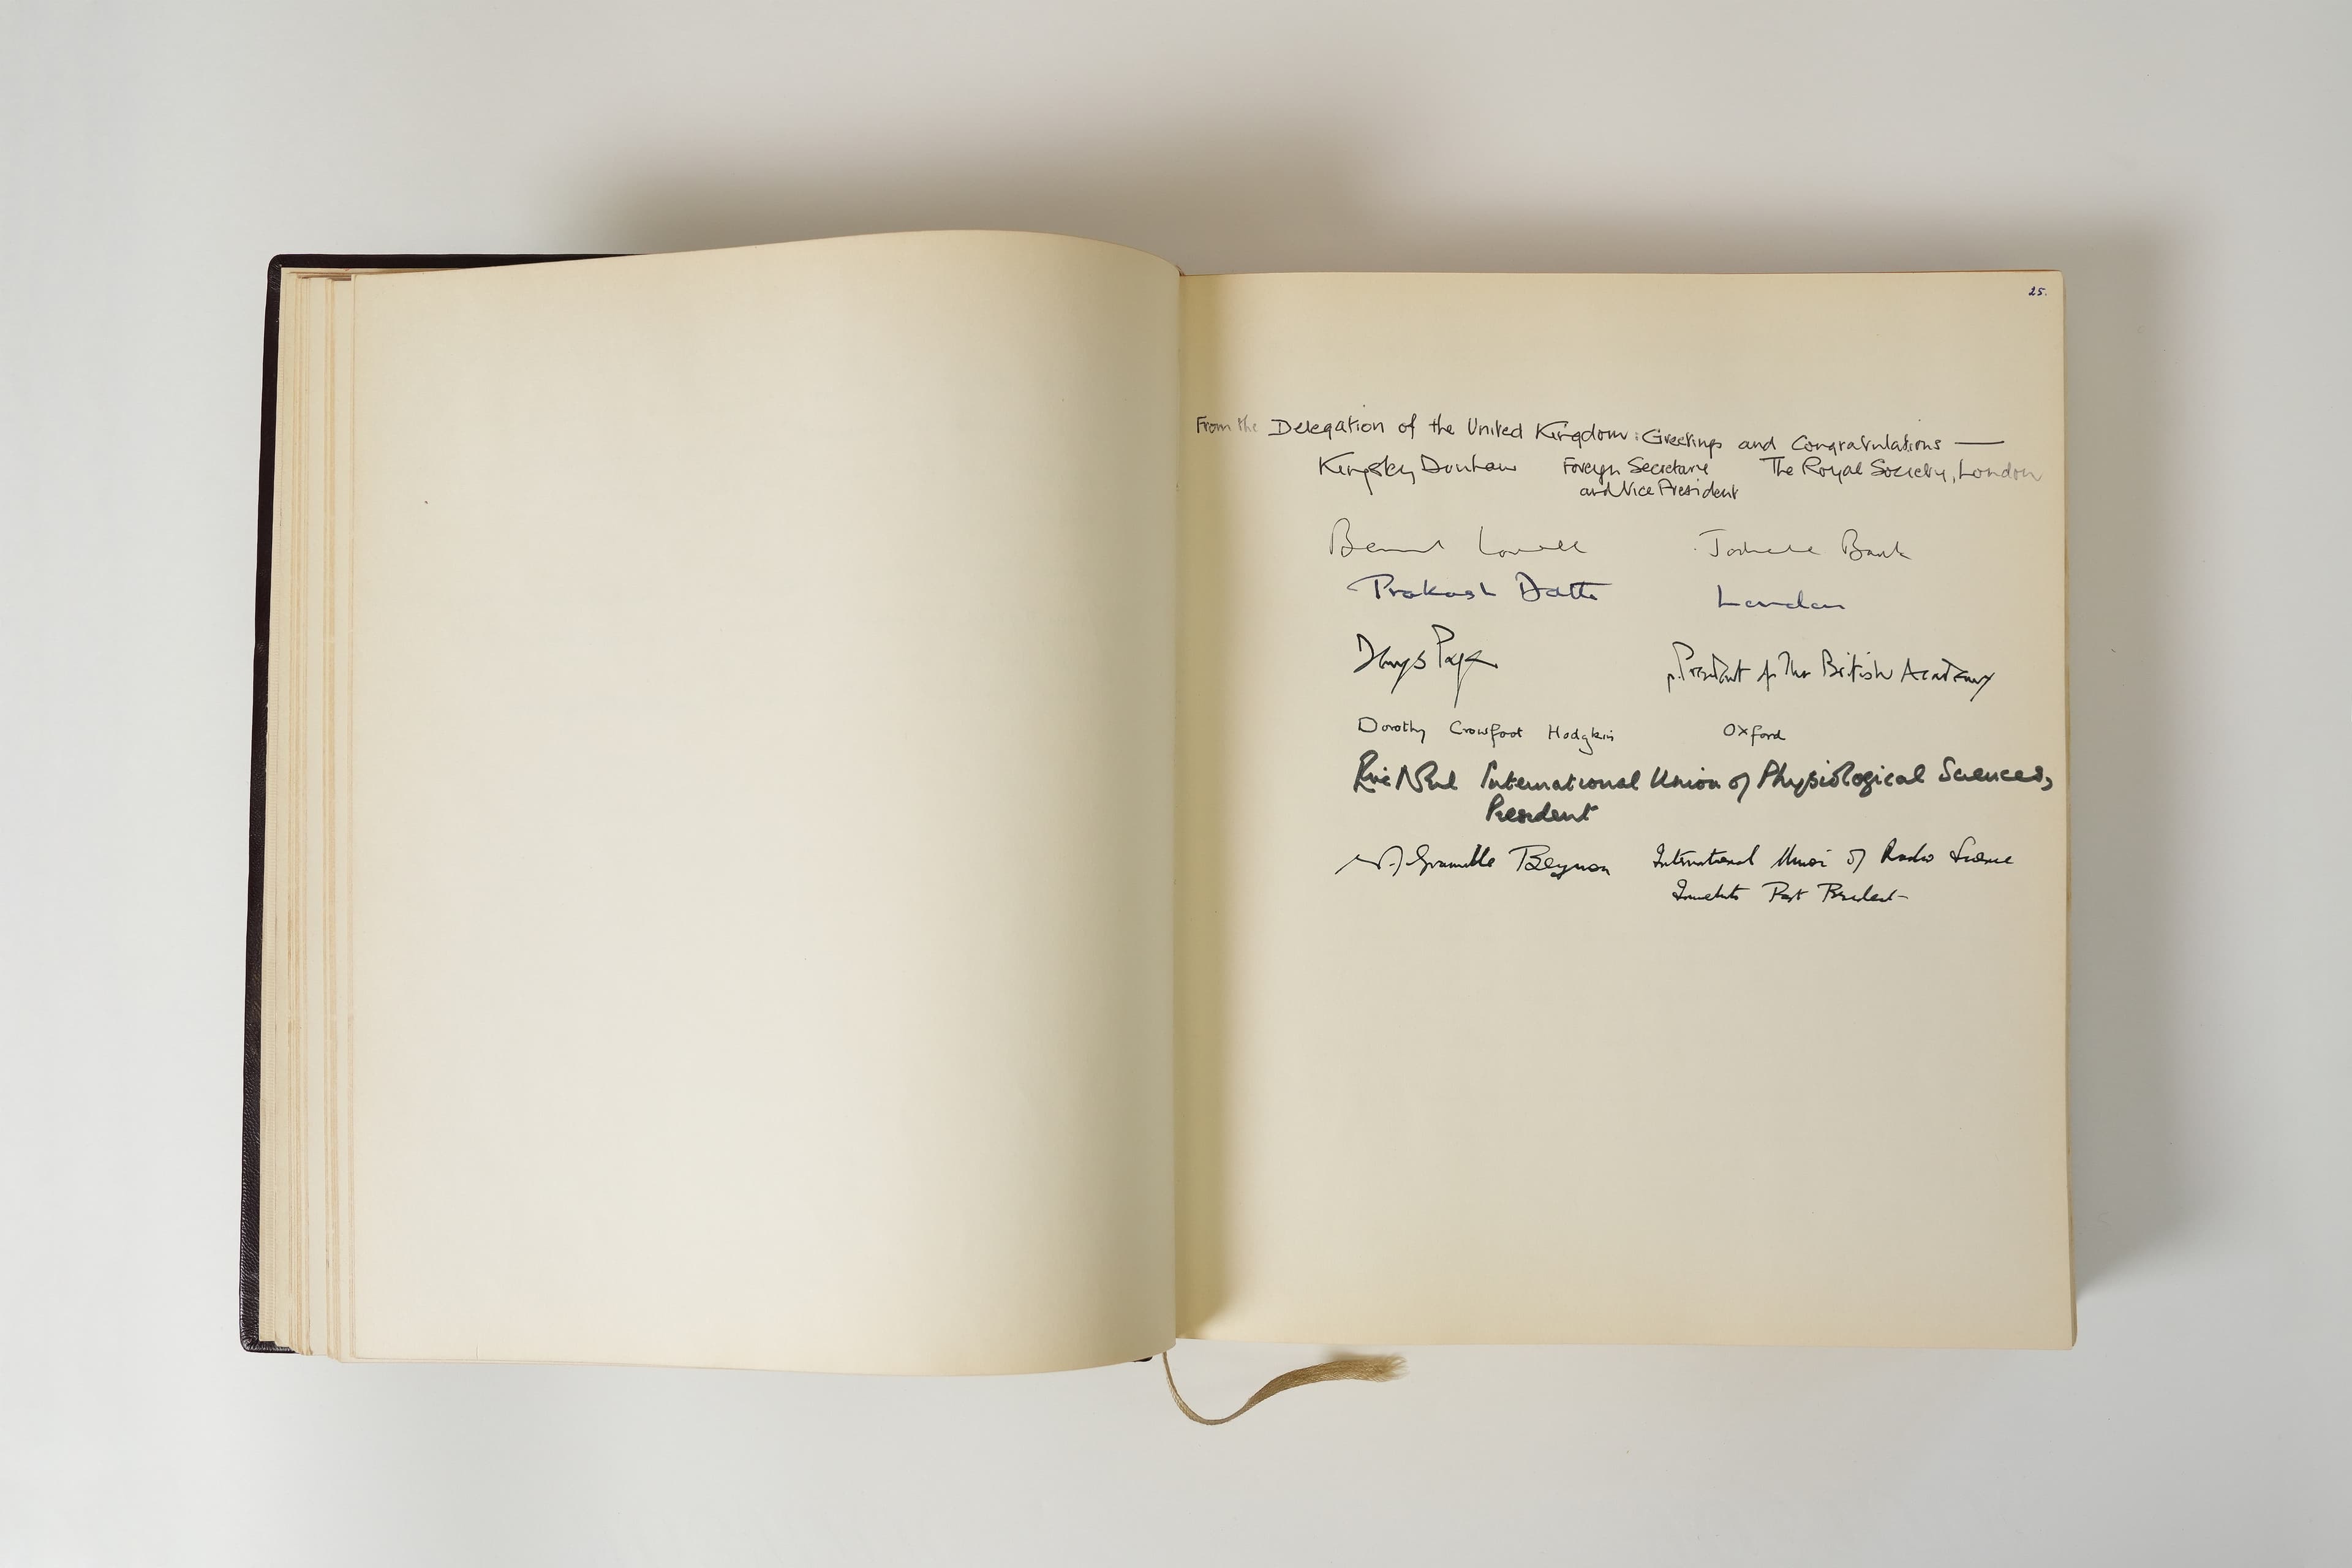 25.
From the Delegation of the United Kingdom: Greetings and Congratulations —
Kingsley Dunham Foreign Secretary The Royal Society, London
and Vice President
Bernard Lovell Jodrell Bank
Prakash Datta London
Denys Page President of the British Academy
Dorothy Crowfoot Hodgkin Oxford
Eric Neil International Union of Physiological Sciences,
President
W. J. Granville Beynon International Union of Radio Science
Immediate Past President